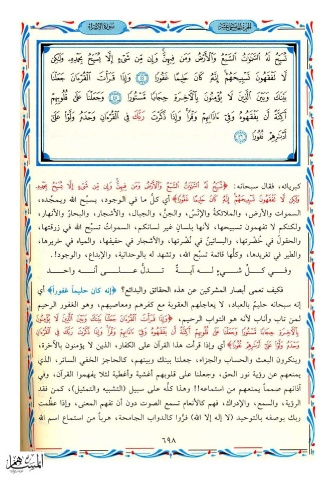 الجزء الخامس عشر
سورة الإسراء
تُسَبِّحُ لَهُ السَّمَوَاتُ السَّبْعُ وَالْأَرْضُ وَمَن فِيهِنَّ وَإِن مِّن شَيْءٍ إِلَّا يُسَبِّحُ بِحَمْدِهِ وَلَكِن
لَّا تَفْقَهُونَ تَسْبِيحَهُمْ إِنَّهُ كَانَ حَلِيمًا غَفُورًا ٤٤ وَإِذَا قَرَأْتَ الْقُرْآنَ جَعَلْنَا
بَيْنَكَ وَبَيْنَ الَّذِينَ لَا يُؤْمِنُونَ بِالْآخِرَةِ حِجَابًا مَّسْتُورًا ٤٥ وَجَعَلْنَا عَلَى قُلُوبِهِمْ
أَكِنَّةً أَن يَفْقَهُوهُ وَفِي آذَانِهِمْ وَقْرًا وَإِذَا ذَكَرْتَ رَبَّكَ فِي الْقُرْآنِ وَحْدَهُ وَلَّوْا عَلَى
أَدْبَارِهِمْ نُفُورًا ٤٦
كبريائه، فقال سبحانه: ﴿تُسَبِّحُ لَهُ السَّمَوَاتُ السَّبْعُ وَالْأَرْضُ وَمَن فِيهِنَّ وَإِن مِّن شَيْءٍ إِلَّا يُسَبِّحُ بِحَمْدِهِ
وَلَكِن لَّا تَفْقَهُونَ تَسْبِيحَهُمْ إِنَّهُ كَانَ حَلِيمًا غَفُورًا﴾ أي كلُّ ما في الوجود، يسبح الله ويمجده،
السموات والأرض، والملائكة والإنس، والجن، والجبال، والأشجار، والبحار والأنهار،
ولكنكم لا تفهمون تسبيحها، لأنها بلسانٍ غير لسانكم، السموات تسبِّح الله في زرقتها،
والحقول في خضرتها، والبساتين في نُضرتها، والأشجار في حفيفها، والمياه في خريرها،
والطير في تغريدها، وكلُّها قائمة تسبِّح الله، وتشهد له بالوحدانية، والإبداع، والوجود!.
وفـي كـل شـيءٍ لـه آيـة تـدلُّ عـلـى أنـه واحـد
فكيف تعمى أبصار المشركين عن هذه الحقائق والبدائع؟ ﴿إنه كان حليماً غفوراً﴾ أي
إنه سبحانه حليمٌ بالعباد، لا يعاجلهم العقوبة مع كفرهم ومعاصيهم، وهو الغفور الرحيم
لمن تاب وأناب لأنه هو التواب الرحيم، ﴿وَإِذَا قَرَأْتَ الْقُرْآنَ جَعَلْنَا بَيْنَكَ وَبَيْنَ الَّذِينَ لَا يُؤْمِنُونَ
بِالْآخِرَةِ حِجَابًا مَّسْتُورًا وَجَعَلْنَا عَلَى قُلُوبِهِمْ أَكِنَّةً أَن يَفْقَهُوهُ وَفِي آذَانِهِمْ وَقْرًا وَإِذَا ذَكَرْتَ رَبَّكَ فِي الْقُرْآنِ
وَحْدَهُ وَلَّوْا عَلَى أَدْبَارِهِمْ نُفُورًا﴾ أي وإذا قرأت هذا القرآن على الكفار، الذين لا يؤمنون بالآخرة،
وينكرون البعث والحساب والجزاء، جعلنا بينك وبينهم، كالحاجز الخفي الساتر، الذي
يمنعهم عن رؤية نور الحق، وجعلنا على قلوبهم أغشية وأغطية لئلا يفهموا القرآن، وفي
آذانهم صمماً يمنعهم من استماعه!! وهذا كله على سبيل (التشبيه والتمثيل)، كمن فقد
الرؤية، والسمع، والإدراك، فهم كالأنعام تسمع الصوت دون أن تفهم المعنى، وإذا عظَّمت
ربك بوصفه بالتوحيد (لا إله إلا الله) فرُّوا كالدواب الجامحة، هرباً من استماع اسم الله
٦٩٨